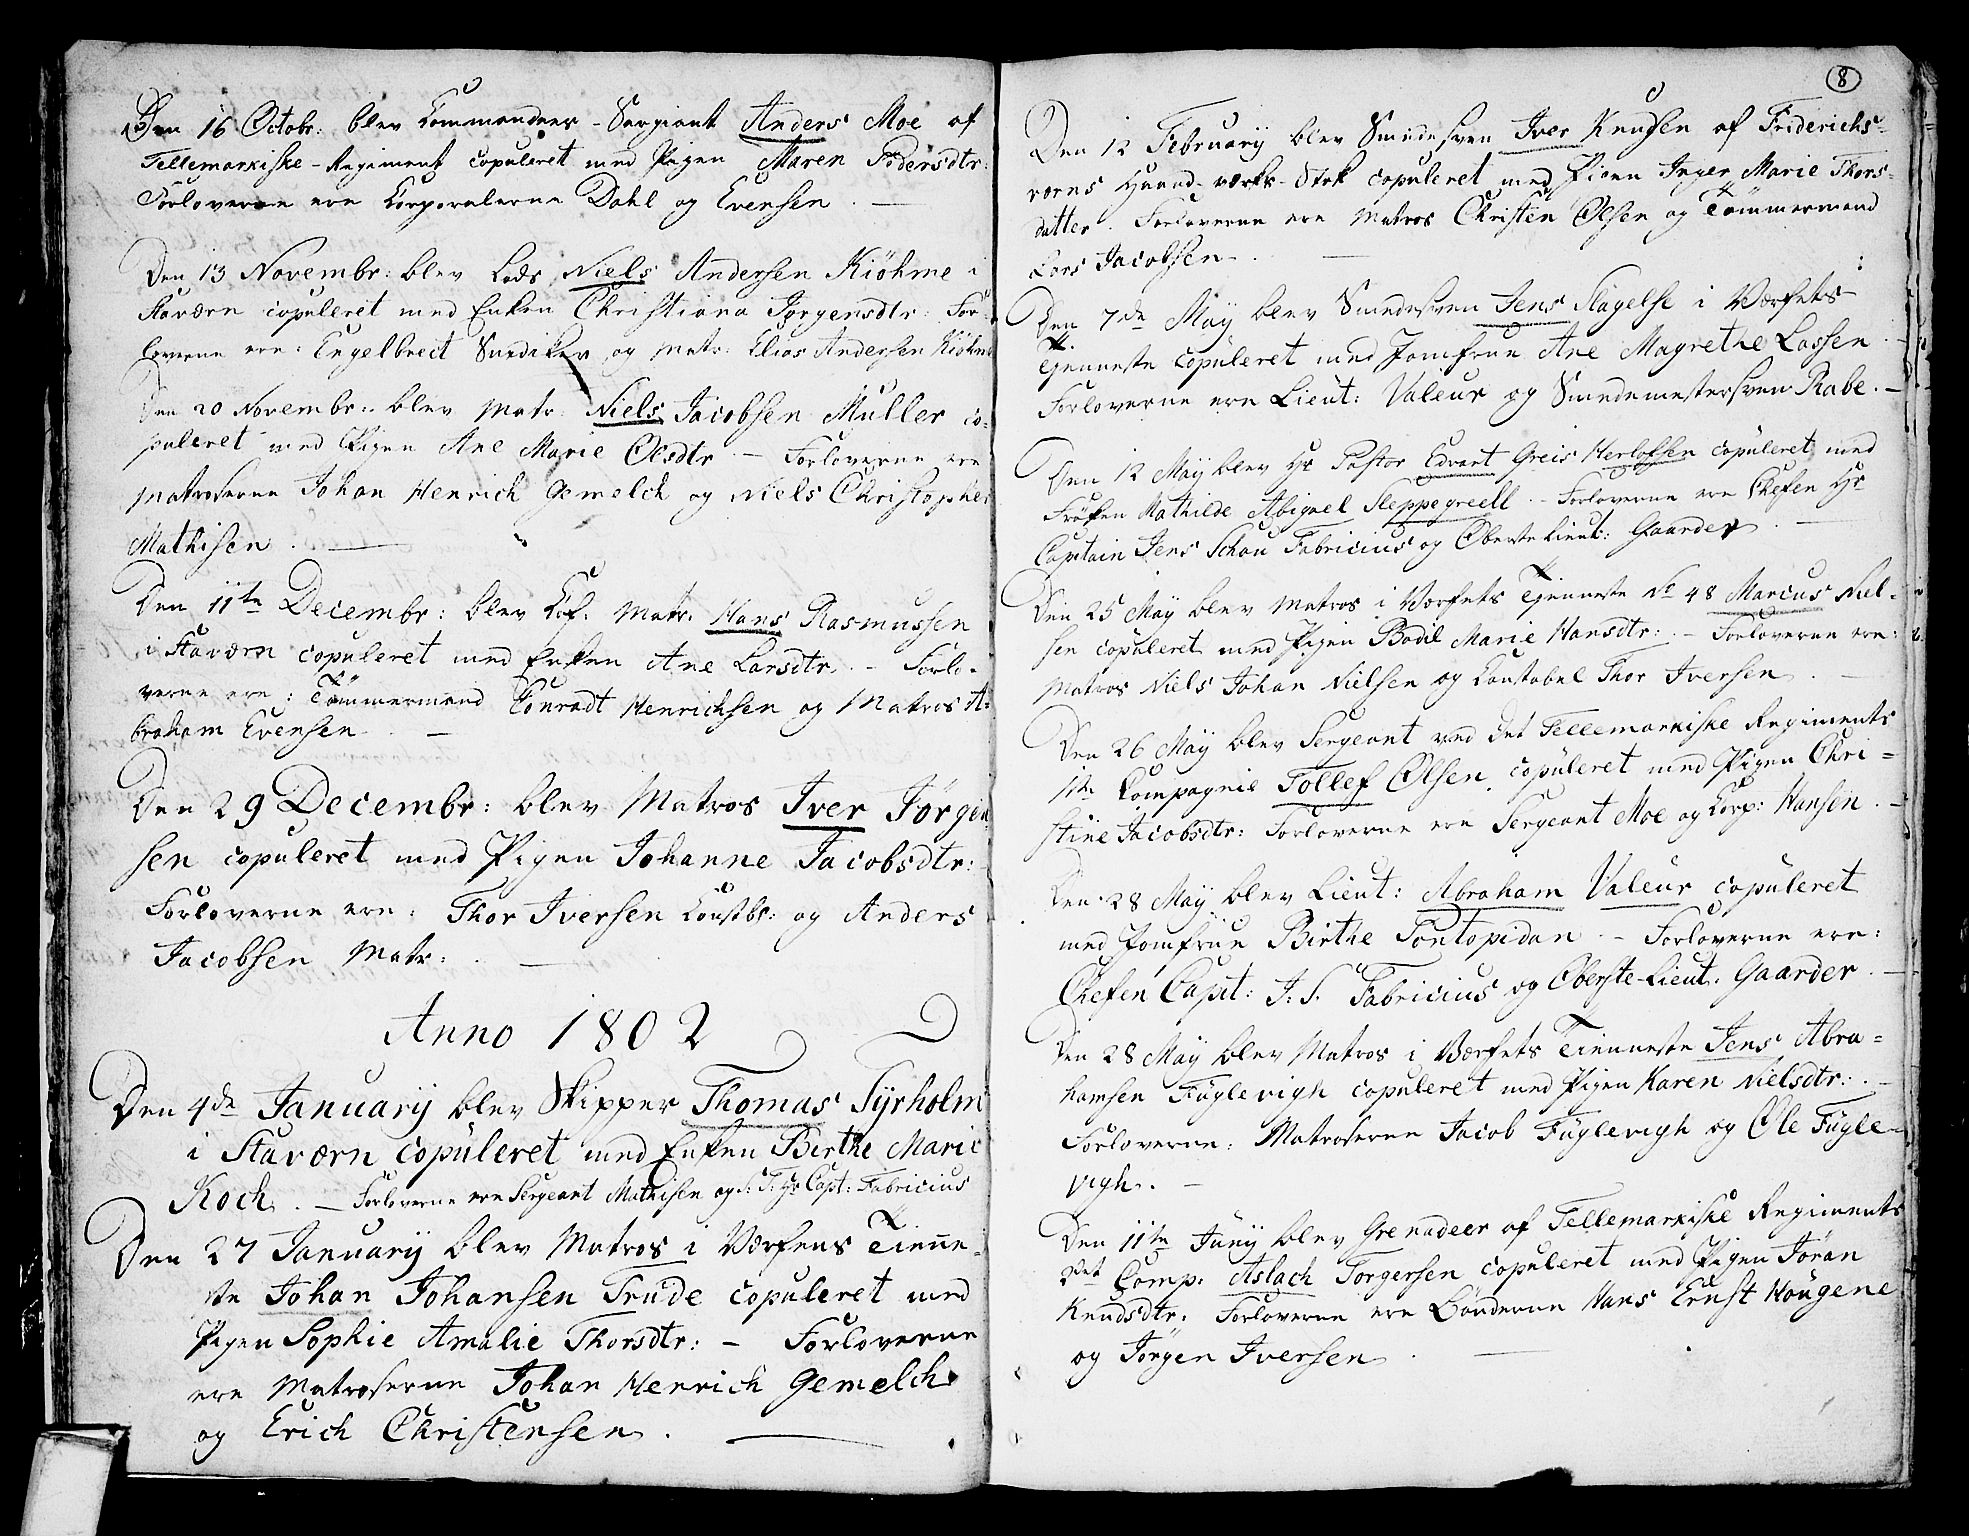 Den 16 Octobr: blev Commandeer-Sergiant Anders Moe af
Tellemarkiske-Regiment copuleret med Pigen Maren Pedersdtr:
Forloverne ere Corporalerne Dahl og Evensen. —
Den 13 Novembr: blev Lods Niels Andersen Kiöhme i
Staværn copuleret med Enken Christiana Jørgensdtr: For-
loverne ere: Engelbrect Snediker og Matr: Elias Andersen Kiöhme
Den 20 Novembr: blev Matr: Niels Jacobsen Muller co-
puleret med Pigen Ane Marie Olsdtr — Forloverne ere
Matroserne Johan Henrich Gemelch og Niels Christopher
Mathisen. —
Den 11te Decembr: blev Matr: Hans Rasmussen
i Staværn copuleret med Enken Ane Larsdtr. — Forlo-
verne ere: Tömmermand Conradt Henrichsen og Matros A-
braham Evensen. —
Den 29 Decembr: blev Matros Iver Jörgen-
sen copuleret med Pigen Johanne Jacobsdtr:
Forloverne ere: Thor Iversen Constbl: og Anders
Jacobsen Matr: . —
Anno 1802
Den 4de Januarÿ blev Skipper Thomas Syrholm
i Staværn copuleret med Enken Birthe Marie
Koch. — Forloverne ere Sergeant Mathisen og S: T: Hr Capt: Fabricius
Den 27 Januarÿ blev Matros i Værfens Tienne-
ste Johan Johansen Trude copuleret med
Pigen Sophie Amalie Thorsdtr: — Forloverne
ere Matroserne Johan Henrich Gemelch
og Erich Christensen. —
8
Den 12 Februarÿ blev Smedesven Iver Knudsen af Friderichs-
værns Haand-værks-Stok copuleret med Pigen Inger Marie Thors-
datter. Forloverne ere Matros Christen Olsen og Tömmermand
Lars Jacobsen. —
Den 7de Maÿ blev Smedesven Jens Slagelse i Værfets
Tjenneste copuleret med Jomfrue Ane Magrethe Lassen.
Forloverne ere Lieut: Valeur og Smedemestersven Rabe. —
Den 12 Maÿ blev Hr Pastor Edvart Greis Herlofsen copuleret med
Fröken Mathilde Abigael Sleppegreell. — Forloverne ere Chefen Hr
Captain Jens Schou Fabricius og Oberste Lieut: Gaarder. —
Den 25 Maÿ blev Matros i Værfets Tjenneste No 48 Marcus Niel-
sen copuleret med Pigen Bodil Marie Hansdtr: — Forloverne ere:
Matros Niels Johan Nielsen og Constabel Thor Iversen. —
Den 26 Maÿ blev Sergeant ved det Tellemarkiske Regiments
1te Compagnie Tollef Olsen copuleret med Pigen Chri-
stine Jacobsdtr: Forloverne ere Sergeant Moe og Corp: Hansen. —
Den 28 Maÿ blev Lieut: Abraham Valeur copuleret
med Jomfrue Birthe Pontopidan. — Forloverne ere:
Chefen Capt: J. S. Fabricius og Oberste-Lieut. Gaarder. —
Den 28 Maÿ blev Matros i Værfets Tienneste Jens Abra-
hamsen Fuglevigh copuleret med Pigen Karen Nielsdtr: . —
Forloverne: Matroserne Jacob Fuglevigh og Ole Fugle-
vigh. —
Den 11te Junÿ blev Grenadeer af Tellemarkiske Regiments
2det Comp: Aslach Torgersen copuleret med Pigen Jöran
Knudsdtr. Forloverne ere Bönderne Hans Ernst Hougene
og Jörgen Iversen. —